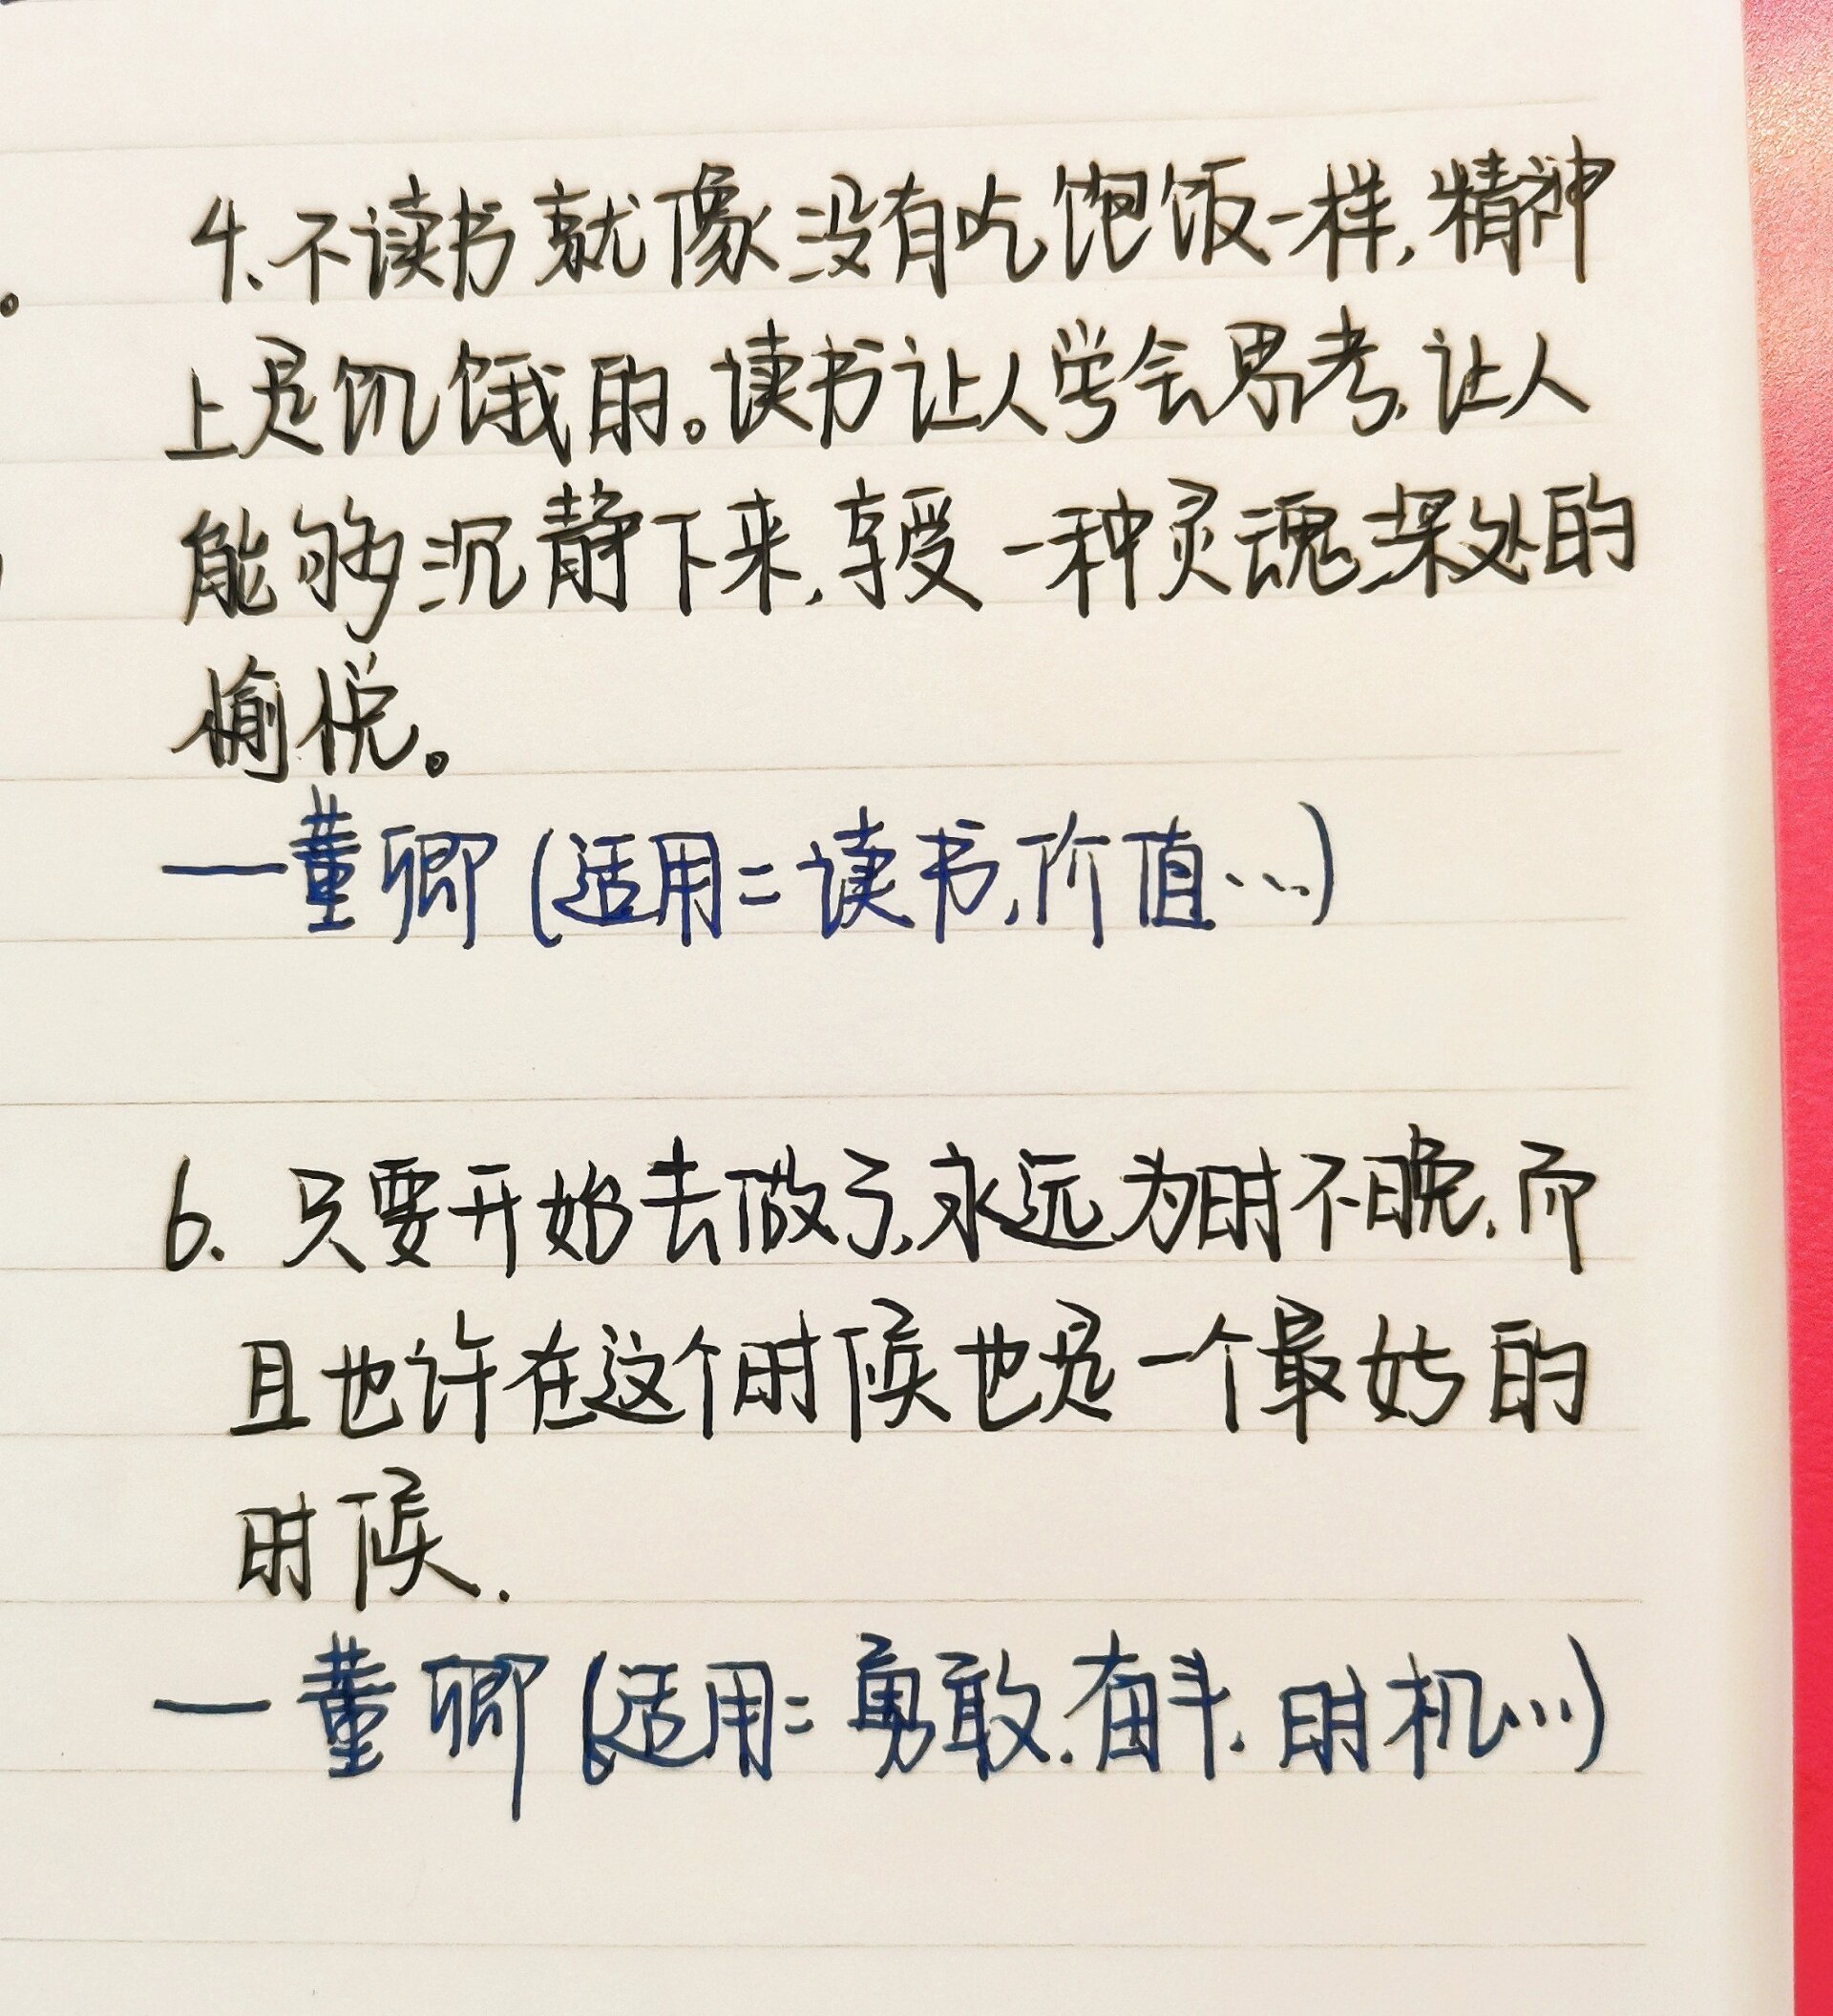 4、不读书就像没有吃饱饭一样,精神
上是饥饿的。读书让人学会思考,让人
能够沉静下来,享受一种灵魂深处的
愉悦。
—董卿(适用:读书,价值...)
6. 只要开始去做了,永远为时不晚,而
且也许在这个时候也是一个最好的
时候.
—董卿(适用:勇敢.奋斗.时机...)